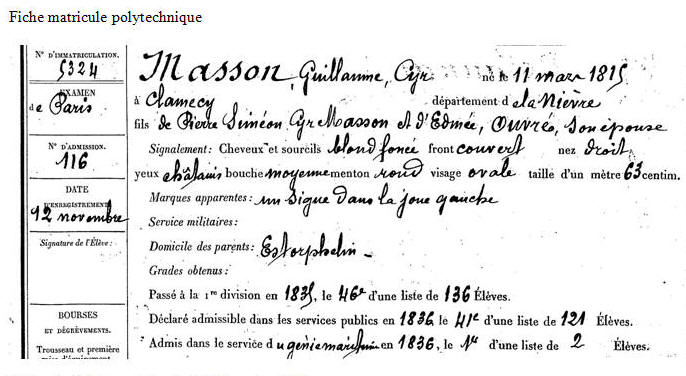 Fiche matricule polytechnique
N° D'IMMATRICULATION.
5324
EXAMEN
de Paris
N° D'ADMISSION.
116
DATE
D'ENREGISTREMENT
12 novembre
Signature de l'Élève :
BOURSES
ET DÉGRÈVEMENTS.
Trousseau et première
mise d'équipement
Masson, Guillaume, Cyr né le 11 mars 1815
à Clamecy département de la Nièvre
fils de Pierre Siméon Cyr Masson et d'Edmée, Ouvré, son épouse
Signalement: Cheveux et sourcils blond foncé front couvert nez droit,
yeux châtains bouche moyenne menton rond visage ovale taille d'un mètre 63 centim.
Marques apparentes : un signe dans la joue gauche
Service militaires :
Domicile des parents : Est orphelin
Grades obtenus :
Passé à la 1re division en 1835, le 46e d'une liste de 136 Élèves.
Déclaré admissible dans les services publics en 1836, le 41e d'une liste de 121 Élèves.
Admis dans le service du génie maritime en 1836, le 1er d'une liste de 2 Élèves.